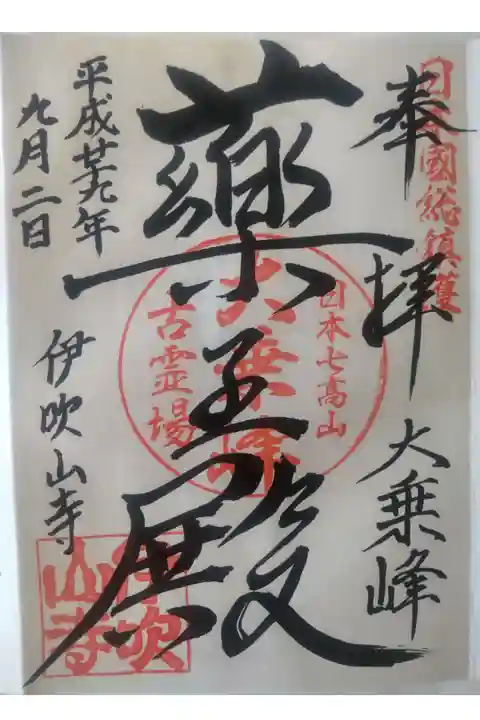 日本國総鎮護
奉拝
大乗峰
藥王殿
日本七高山
大乗峰
古霊場
平成廿九年
九月二日
伊吹山寺
伊吹
山寺